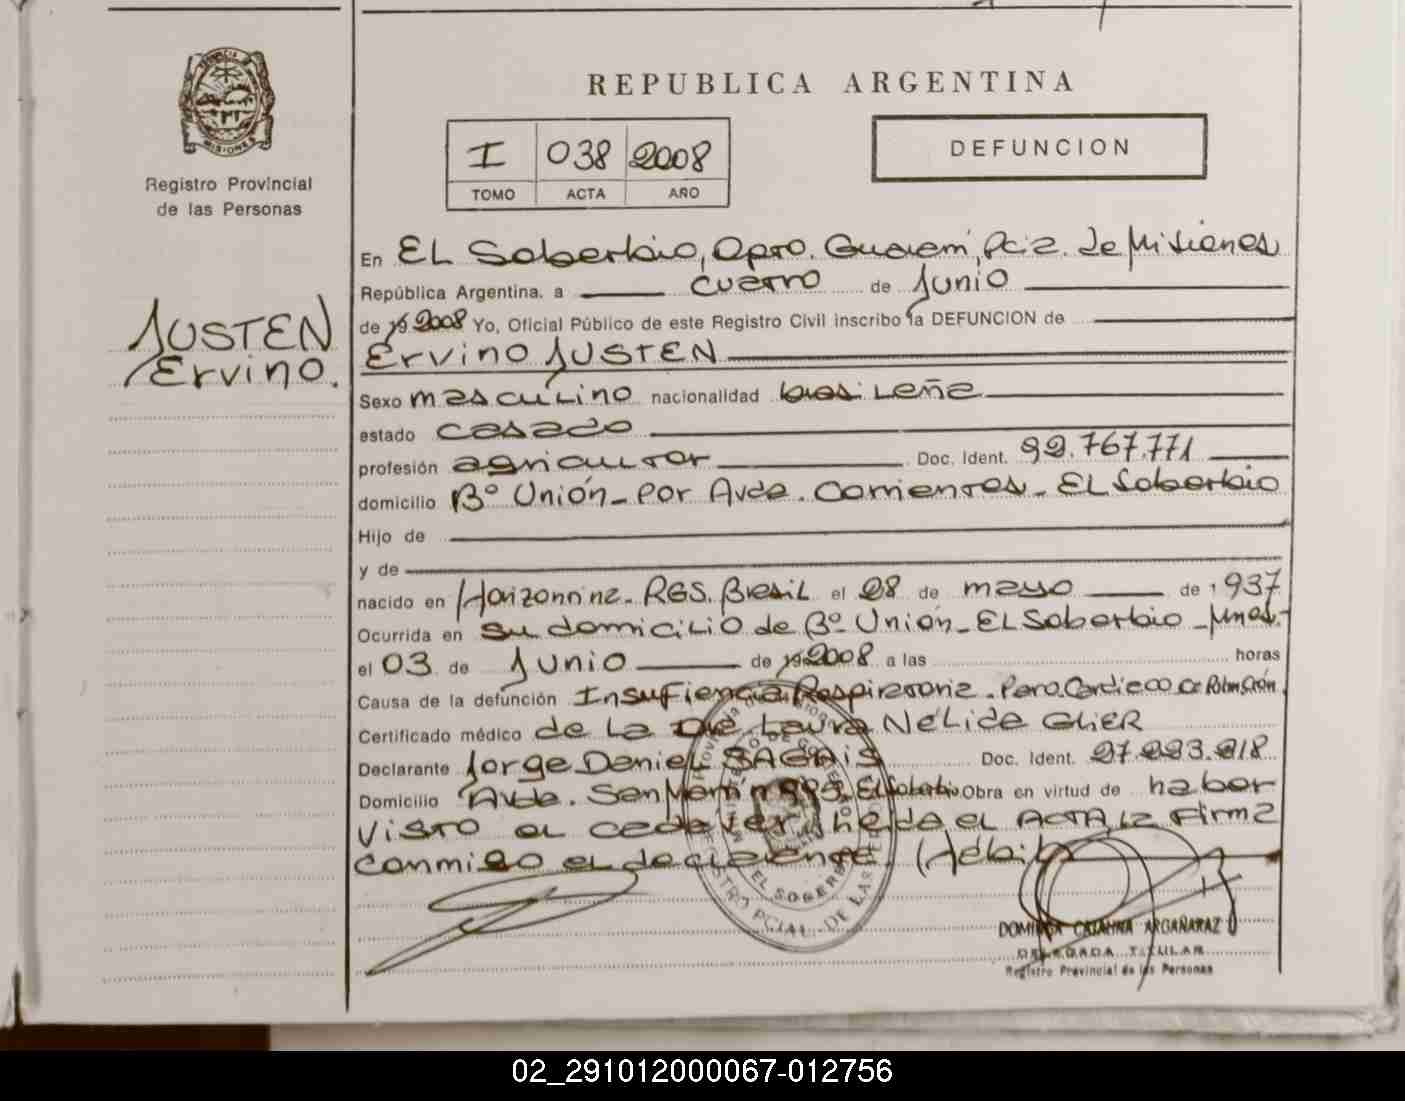 REPUBLICA ARGENTINA
PROVINCIA DE
MISIONES
Registro Provincial
de las Personas
I 038 2008
TOMO ACTA AÑO
DEFUNCION
JUSTEN
Ervino.
En EL Soberbio, Dpto. Guaraní, Pcia. de Misiones
República Argentina. a cuatro de Junio
de 19 2008 Yo, Oficial Público de este Registro Civil inscribo la DEFUNCION de
Ervino JUSTEN
Sexo masculino nacionalidad brasileña
estado casado
profesión agricultor Doc. Ident. 92.767.771
domicilio Bº Unión - por Avda. Corrientes - EL Soberbio
Hijo de
y de
nacido en Horizontina - RGS. Brasil el 28 de mayo de 1937
Ocurrida en su domicilio de Bº Unión - EL Soberbio - Mnes.-
el 03 de Junio de 19 2008 a las horas
Causa de la defunción Insufiencia Respiratoria - Paro Cardiaco
Certificado médico de la Dra. Laura Nélida GLIER
Declarante Jorge Daniel Doc. Ident. 27.223.218
Domicilio Avda. San Martín El Soberbio Obra en virtud de haber
visto el cadaver, leida el ACTA la firma
conmigo el declarante.
EL SOBERBIO
DOMINGA CATALINA ARGAÑARAZ
DELEGADA TITULAR
Registro Provincial de las Personas
02_291012000067-012756